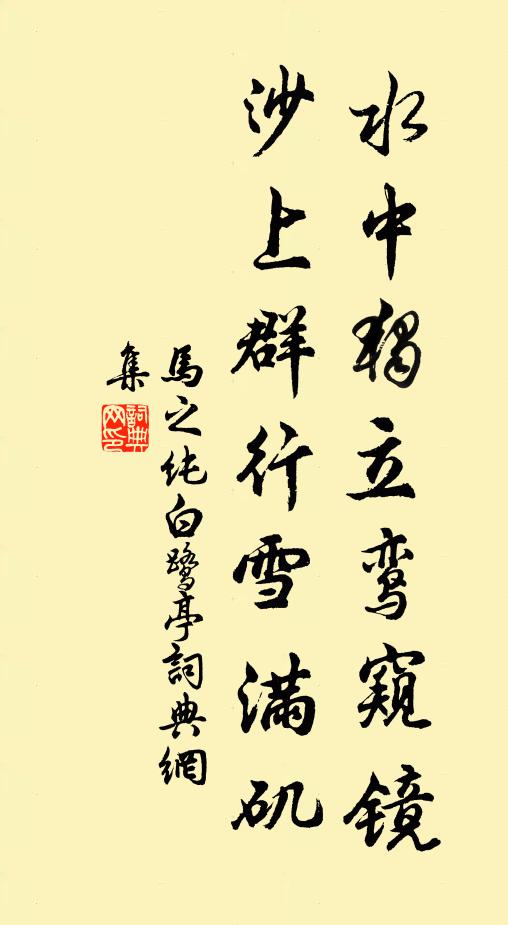 水中独立鸾窥镜
沙上群行雪满矶
馬之纯白鹭亭詞典網
集
詞典网印